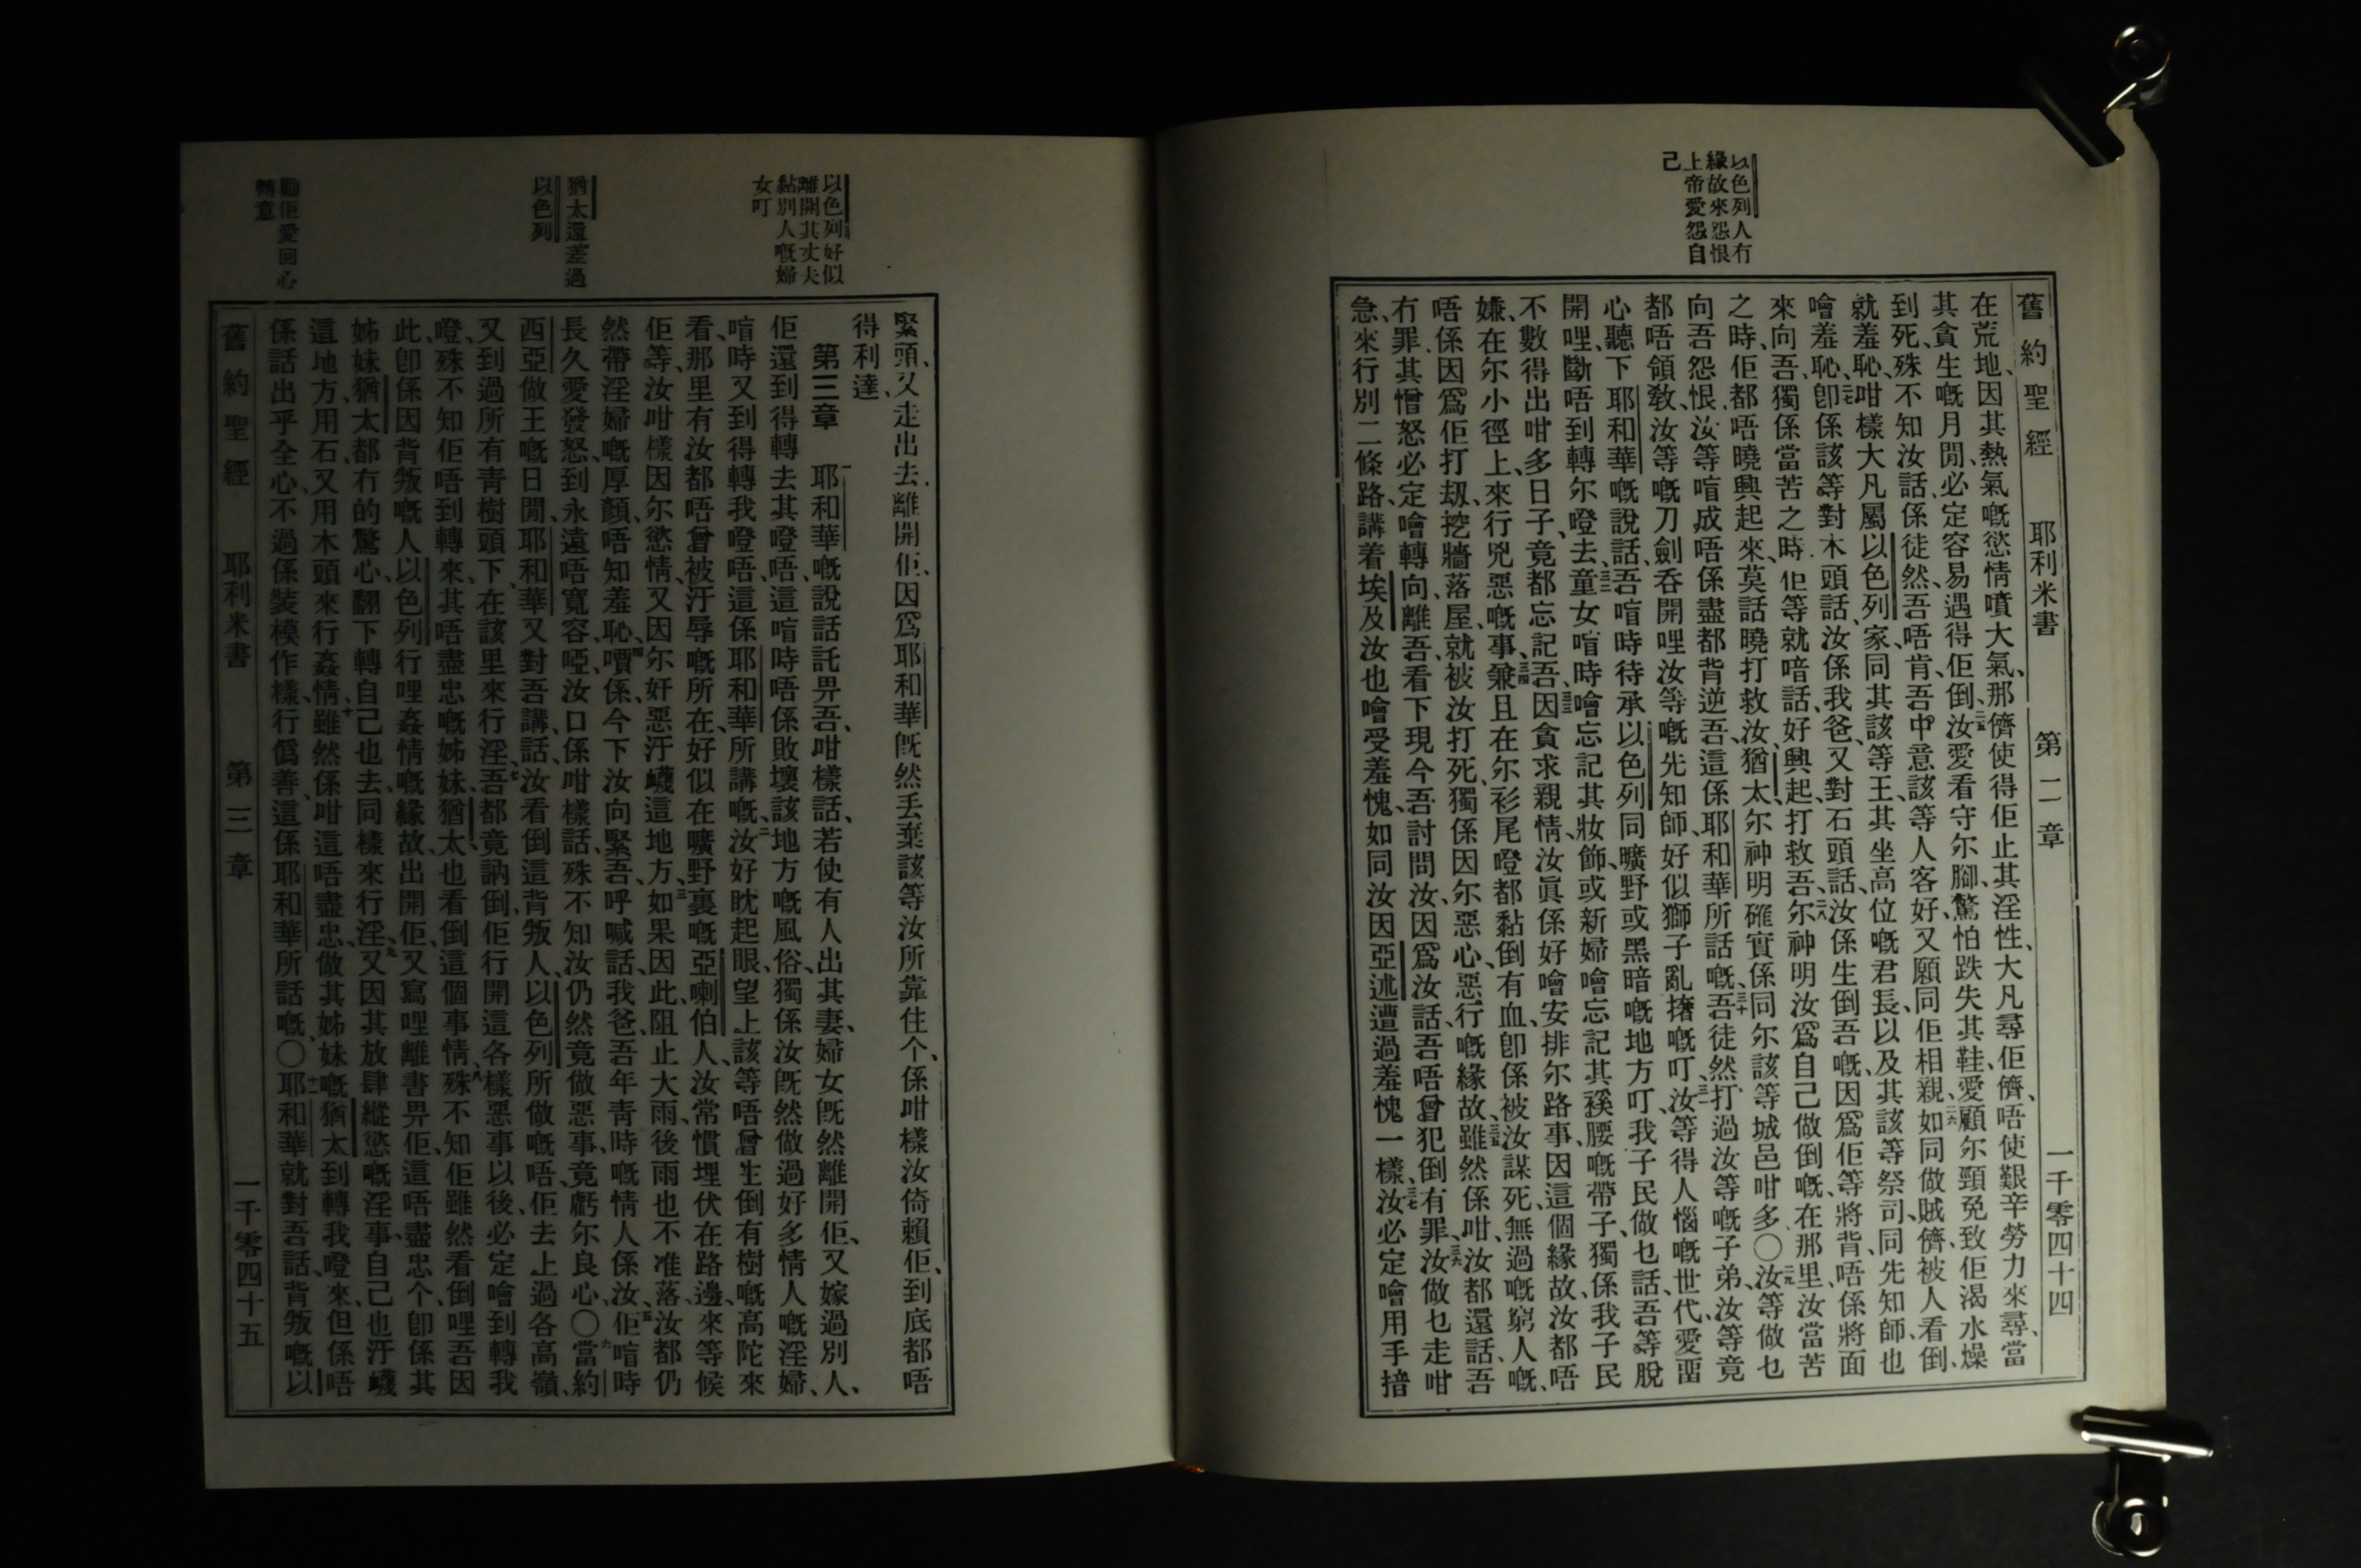 以色列人冇
緣故來怨恨
上帝愛怨自
己
舊約聖經 耶利米書 第二章 一千零四十四
在荒地、因其熱氣嘅慾情噴大氣、那儕使得佢止其淫性、大凡尋佢儕、唔使艱辛勞力來尋、當
其貪生嘅月閒、必定容易遇得佢倒、汝愛看守尔腳、驚怕跌失其鞋、愛顧尔頸免致佢渴水燥
到死、殊不知汝話、係徒然、吾唔肯、吾中意該等人客好、又願同佢相親、如同做賊儕、被人看倒、
就羞恥、咁樣大凡屬以色列家、同其該等王、其坐高位嘅君長、以及其該等祭司、同先知師、也
噲羞恥、卽係該等對木頭話、汝係我爸、又對石頭話、汝係生倒吾嘅、因爲佢等將背、唔係將面
來向吾、獨係當苦之時、佢等就喑話、好興起、打救吾、尔神明汝爲自己做倒嘅、在那里、汝當苦
之時、佢都唔曉興起來、莫話曉打救汝、猶太尔神明確實係同尔該等城邑咁多〇汝等做乜
向吾怨恨、汝等喑成唔係盡都背逆吾、這係耶和華所話嘅、吾徒然打過汝等嘅子弟、汝等竟
都唔領敎、汝等嘅刀劍吞開哩汝等嘅先知師、好似獅子亂撦嘅叮、汝等得人惱嘅世代、愛㽞
心聽下耶和華嘅說話、吾喑時待承以色列同曠野或黑暗嘅地方叮、我子民做乜話、吾等脫
開哩、斷唔到轉尔噔去、童女喑時噲忘記其妝飾、或新婦噲忘記其襚腰嘅帶子、獨係我子民
不數得出咁多日子、竟都忘記吾、因貪求親情、汝眞係好噲安排尔路事、因這個緣故、汝都唔
嫌在尔小徑上、來行兇惡嘅事、兼且在尔衫尾噔、都黏倒有血、卽係被汝謀死、無過嘅窮人嘅、
唔係因爲佢打刼、挖牆落屋、就被汝打死、獨係因尔惡心、惡行嘅緣故、雖然係咁、汝都還話、吾
冇罪、其憎怒必定噲轉向、離吾、看下現今吾討問汝、因爲汝話、吾唔曾犯倒有罪、汝做乜走咁
急、來行別二條路、講着埃及汝也噲受羞愧、如同汝因亞述遭過羞愧一樣、汝必定噲用手揞
以色列好似
離開其丈夫
黏別人嘅婦
女叮
猶太還差過
以色列
勸佢愛回心
轉意
緊頭、又走出去、離開佢、因爲耶和華旣然丢棄該等汝所靠住个、係咁樣汝倚賴佢、到底都唔
得利達、
第三章 耶和華嘅說話託畀吾、咁樣話、若使有人出其妻、婦女旣然離開佢、又嫁過別人、
佢還到得轉去其噔唔、這喑時唔係敗壞該地方嘅風俗、獨係汝旣然做過好多情人嘅淫婦、
喑時又到得轉我噔唔、這係耶和華所講嘅、汝好眈起眼、望上該等唔曾生倒有樹嘅高陀來
看、那里有汝都唔曾被汙辱嘅所在、好似在曠野裏嘅亞喇伯人、汝常慣埋伏在路邊、來等候
佢等、汝咁樣因尔慾情、又因尔奸惡、汙巇這地方、如果因此、阻止大雨、後雨也不准落、汝都仍
然帶淫婦嘅厚顏、唔知羞恥、嘪係今下汝向緊吾、呼喊話、我爸、吾年靑時嘅情人係汝、佢喑時
長久愛發怒、到永遠唔寬容、啞、汝口係咁樣話、殊不知汝仍然竟做惡事、竟虧尔良心〇當約
西亞做王嘅日閒、耶和華又對吾講話、汝看倒這背叛人、以色列所做嘅唔、佢去上過各高嶺、
又到過所有靑樹頭下、在該里來行淫、吾都竟訥倒、佢行開這各樣惡事以後、必定噲到轉我
噔、殊不知佢唔到轉來、其唔盡忠嘅姊妹、猶太也看倒這個事情、殊不知佢雖然看倒哩吾因
此、卽係因背叛嘅人、以色列行哩姦情嘅緣故、出開佢、又寫哩離書畀佢、這唔盡忠个、卽係其
姊妹猶太都冇的驚心、翻下轉自己也去、同樣來行淫、又因其放肆縱慾嘅淫事、自己也汙巇
這地方、用石、又用木頭來行姦情、雖然係咁、這唔盡忠、做其姊妹嘅猶太到轉我噔來、但係唔
係話出乎全心、不過係裝模作樣、行僞善、這係耶和華所話嘅、〇耶和華就對吾話、背叛嘅以
舊約聖經 耶利米書 第三章 一千零四十五